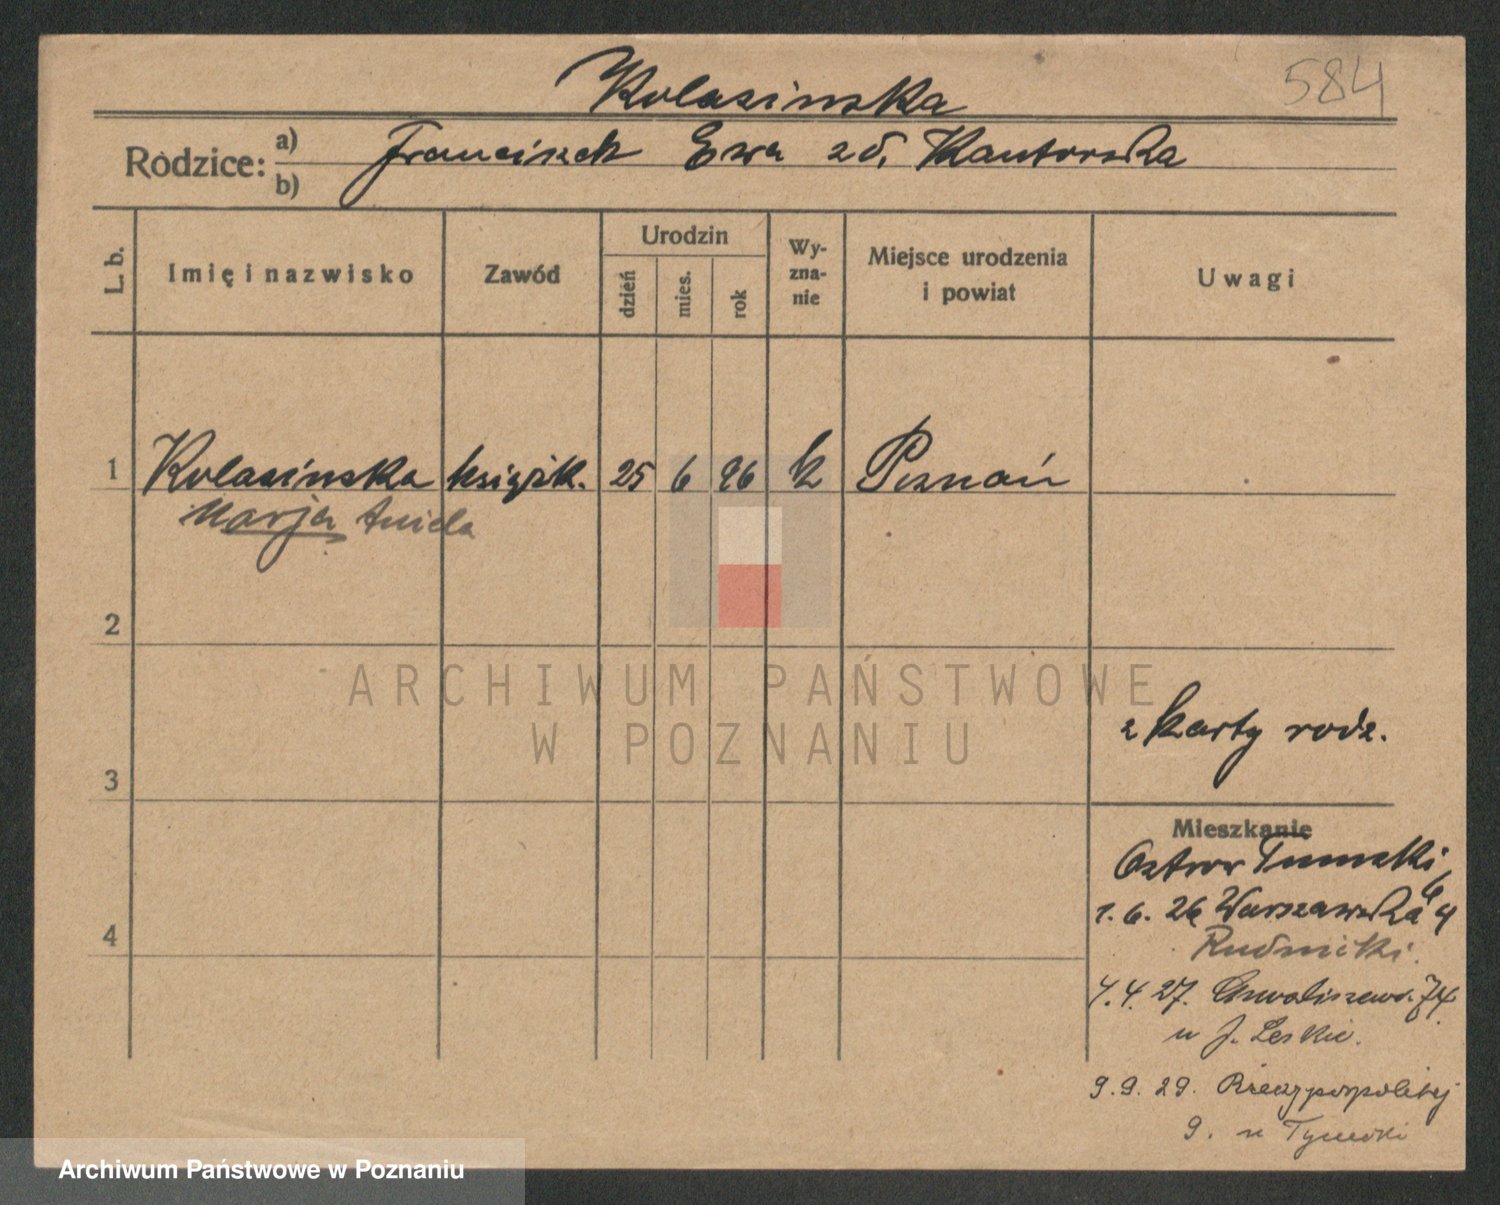 584
Kolasinska
Rodzice: a) b) Franciszek Ewa zd. Kantorska
L. b. Imię i nazwisko Zawód Urodzin dzień mies. rok Wy-zna-nie Miejsce urodzenia i powiat Uwagi
1 Kolasinska książk. 25 6 96 k Poznań
Marja Aniela
2
ARCHIWUM PAŃSTWOWE
W POZNANIU
z karty rodz.
3
Mieszkanie
Ostrow Tumski 6
1. 6. 26 Warszawska 4
4
Rudnicki.
4. 27. 74
u J. Leskie.
9. 9. 29. Rzeczypospolitej
9. u
Archiwum Państwowe w Poznaniu